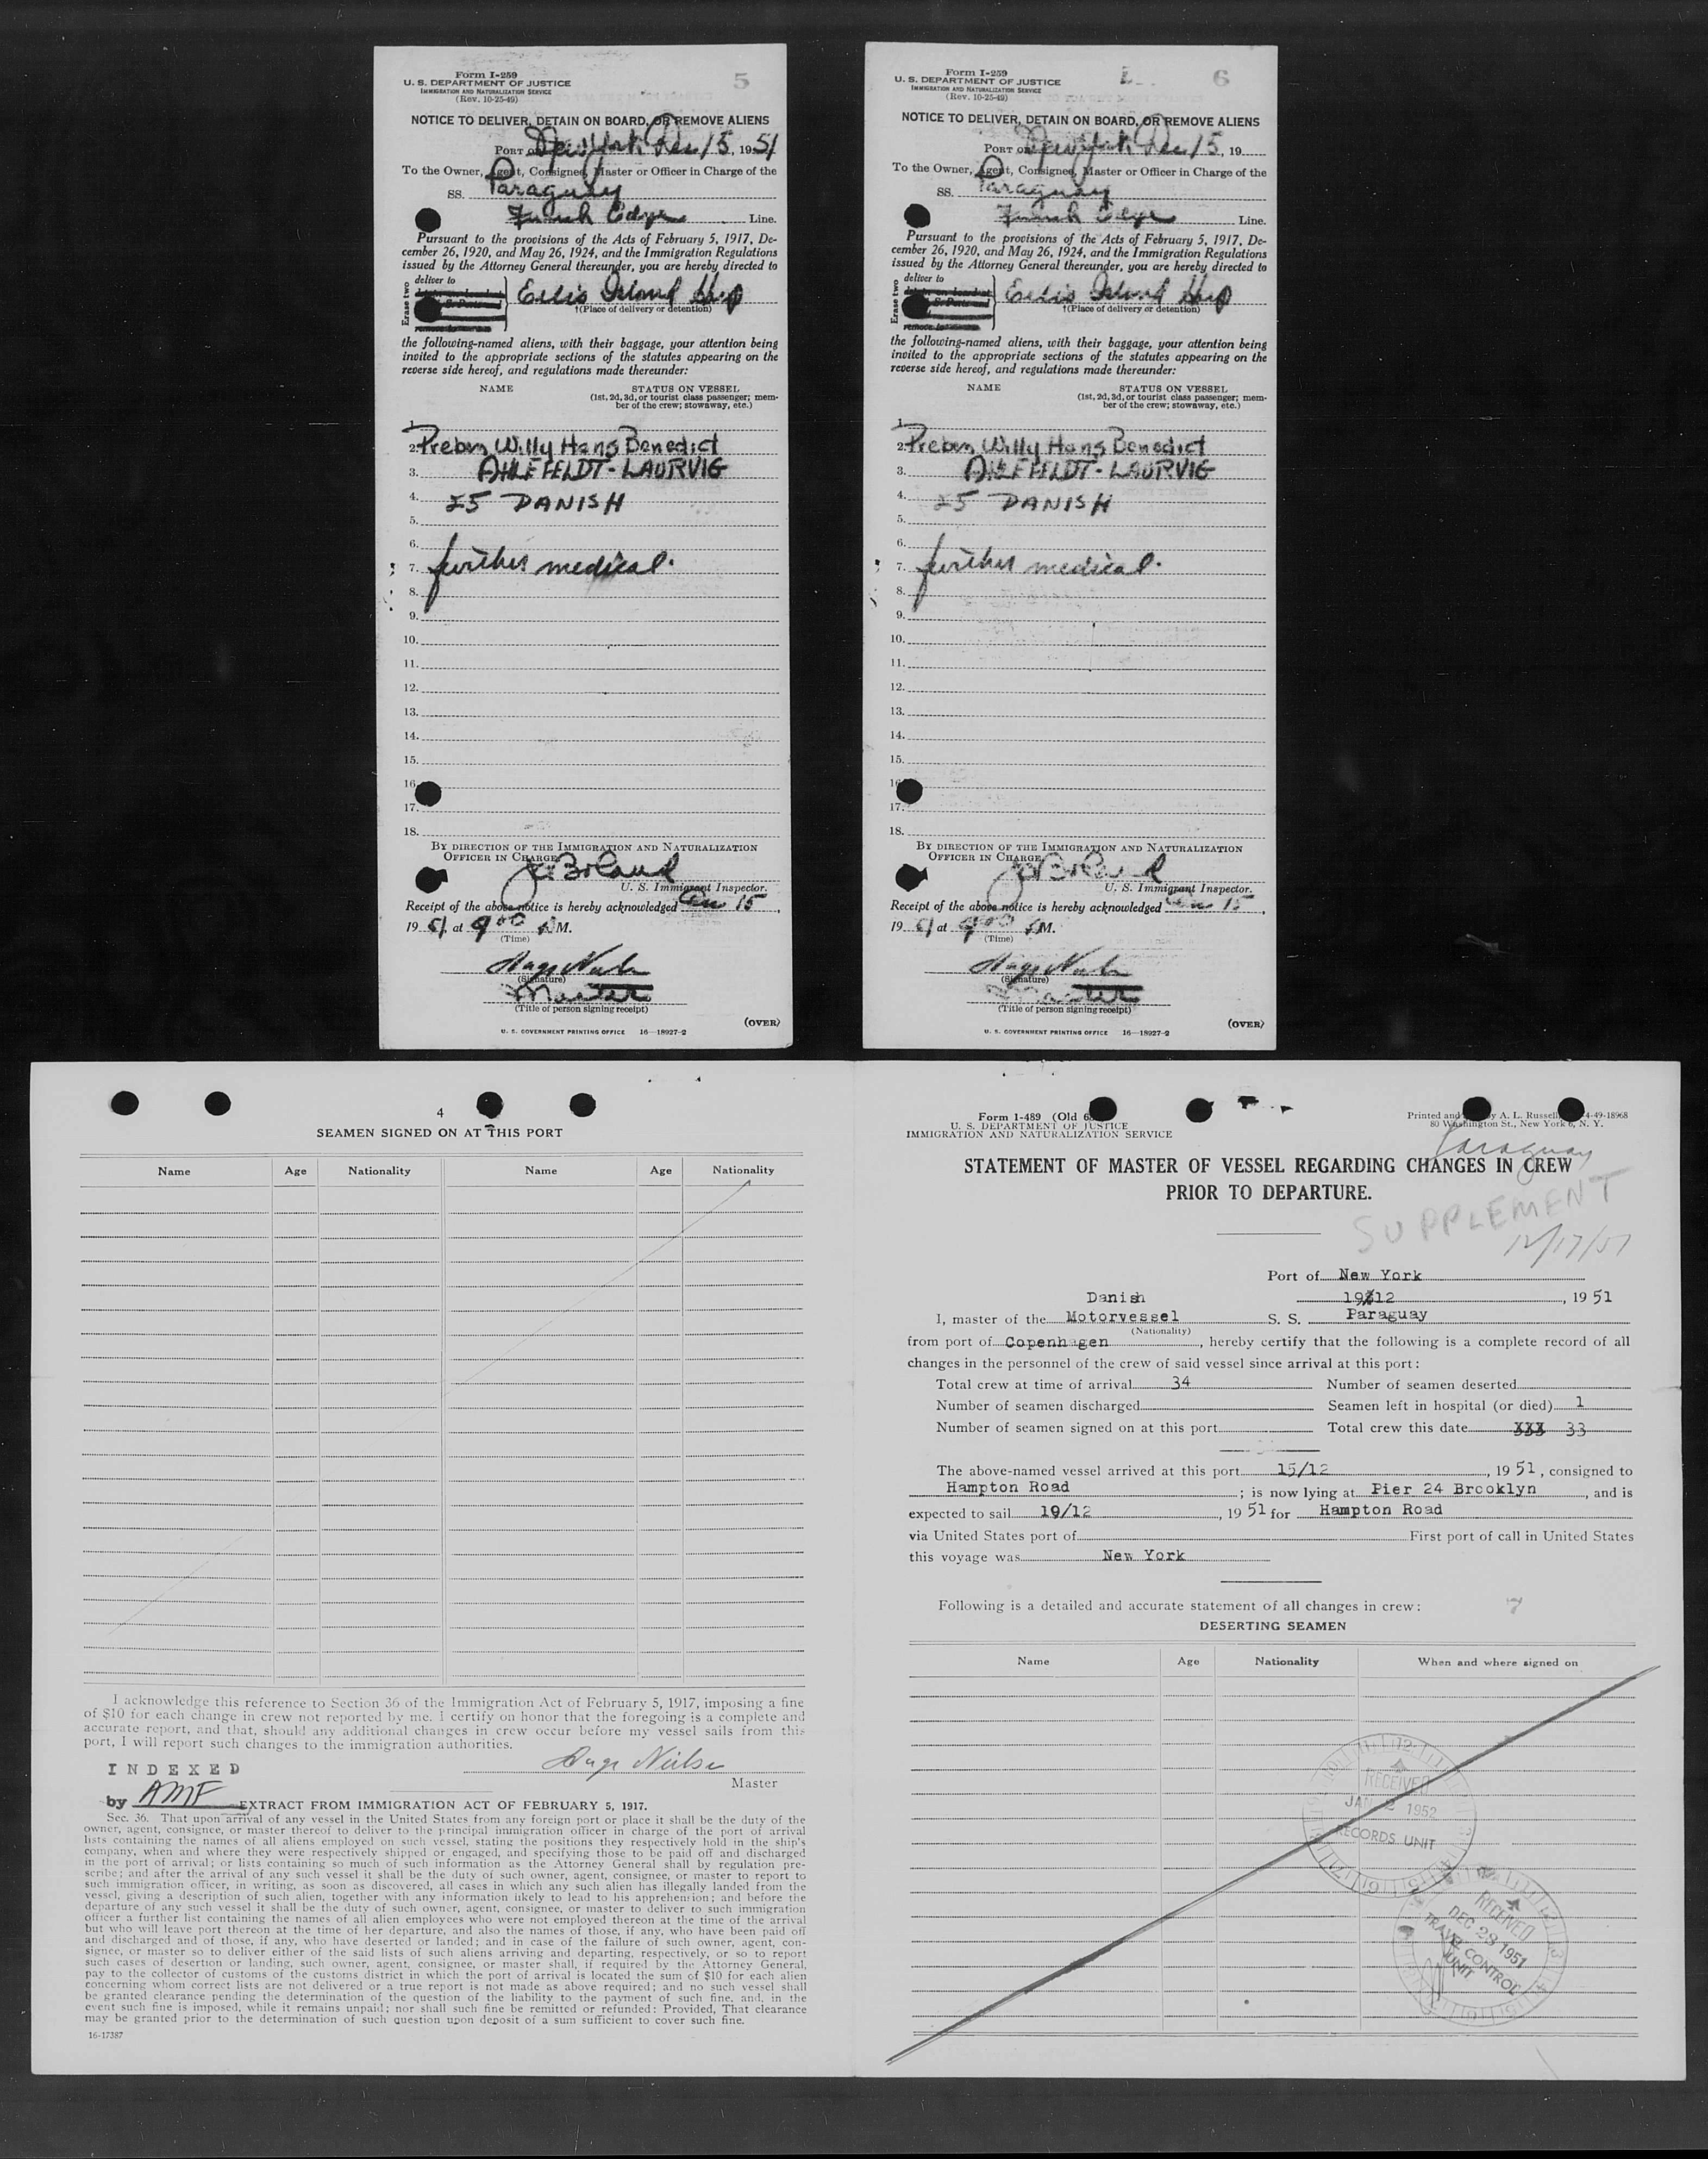 Form I-259
U. S. DEPARTMENT OF JUSTICE
IMMIGRATION AND NATURALIZATION SERVICE
(Rev. 10-25-49)
5
NOTICE TO DELIVER, DETAIN ON BOARD, OR REMOVE ALIENS
PORT of New York Dec 15, 1951
To the Owner, Agent, Consignee, Master or Officer in Charge of the
SS. Paraguay
Line.
Pursuant to the provisions of the Acts of February 5, 1917, De-
cember 26, 1920, and May 26, 1924, and the Immigration Regulations
issued by the Attorney General thereunder, you are hereby directed to
Erase two
deliver to
Ellis Island Hosp
†(Place of delivery or detention)
the following-named aliens, with their baggage, your attention being
invited to the appropriate sections of the statutes appearing on the
reverse side hereof, and regulations made thereunder:
NAME STATUS ON VESSEL
(1st, 2d, 3d, or tourist class passenger; mem-
ber of the crew; stowaway, etc.)
1.
2. Preben Willy Hans Benedict
3. AHLEFELDT - LAURVIG
4. 25 DANISH
5.
6.
7. further medical.
8.
9.
10.
11.
12.
13.
14.
15.
16.
17.
18.
BY DIRECTION OF THE IMMIGRATION AND NATURALIZATION
OFFICER IN CHARGE
Boland
U. S. Immigrant Inspector.
Receipt of the above notice is hereby acknowledged Dec 15,
1951 at 9 00 AM.
(Time)
Aage Nielsen
(Signature)
Master
(Title of person signing receipt)
(OVER)
U. S. GOVERNMENT PRINTING OFFICE 16—18927-2
Form I-259
U. S. DEPARTMENT OF JUSTICE
IMMIGRATION AND NATURALIZATION SERVICE
(Rev. 10-25-49)
6
NOTICE TO DELIVER, DETAIN ON BOARD, OR REMOVE ALIENS
PORT of New York Dec 15, 19
To the Owner, Agent, Consignee, Master or Officer in Charge of the
SS. Paraguay
Line.
Pursuant to the provisions of the Acts of February 5, 1917, De-
cember 26, 1920, and May 26, 1924, and the Immigration Regulations
issued by the Attorney General thereunder, you are hereby directed to
Erase two
deliver to
Ellis Island Hosp
†(Place of delivery or detention)
the following-named aliens, with their baggage, your attention being
invited to the appropriate sections of the statutes appearing on the
reverse side hereof, and regulations made thereunder:
NAME STATUS ON VESSEL
(1st, 2d, 3d, or tourist class passenger; mem-
ber of the crew; stowaway, etc.)
1.
2. Preben Willy Hans Benedict
3. AHLEFELDT - LAURVIG
4. 25 DANISH
5.
6.
7. further medical.
8.
9.
10.
11.
12.
13.
14.
15.
16
17.
18.
BY DIRECTION OF THE IMMIGRATION AND NATURALIZATION
OFFICER IN CHARGE
Boland
U. S. Immigrant Inspector.
Receipt of the above notice is hereby acknowledged Dec 15,
1951 at 9 00 AM.
(Time)
Aage Nielsen
(Signature)
Master
(Title of person signing receipt)
(OVER)
U. S. GOVERNMENT PRINTING OFFICE 16—18927-2
4
SEAMEN SIGNED ON AT THIS PORT
Name Age Nationality Name Age Nationality
I acknowledge this reference to Section 36 of the Immigration Act of February 5, 1917, imposing a fine
of $10 for each change in crew not reported by me. I certify on honor that the foregoing is a complete and
accurate report, and that, should any additional changes in crew occur before my vessel sails from this
port, I will report such changes to the immigration authorities.
Aage Nielsen
Master
INDEXED
by AMF
EXTRACT FROM IMMIGRATION ACT OF FEBRUARY 5, 1917.
Sec. 36. That upon arrival of any vessel in the United States from any foreign port or place it shall be the duty of the
owner, agent, consignee, or master thereof to deliver to the principal immigration officer in charge of the port of arrival
lists containing the names of all aliens employed on such vessel, stating the positions they respectively hold in the ship's
company, when and where they were respectively shipped or engaged, and specifying those to be paid off and discharged
in the port of arrival; or lists containing so much of such information as the Attorney General shall by regulation pre-
scribe; and after the arrival of any such vessel it shall be the duty of such owner, agent, consignee, or master to report to
such immigration officer, in writing, as soon as discovered, all cases in which any such alien has illegally landed from the
vessel, giving a description of such alien, together with any information likely to lead to his apprehension; and before the
departure of any such vessel it shall be the duty of such owner, agent, consignee, or master to deliver to such immigration
officer a further list containing the names of all alien employees who were not employed thereon at the time of the arrival
but who will leave port thereon at the time of her departure, and also the names of those, if any, who have been paid off
and discharged and of those, if any, who have deserted or landed; and in case of the failure of such owner, agent, con-
signee, or master so to deliver either of the said lists of such aliens arriving and departing, respectively, or so to report
such cases of desertion or landing, such owner, agent, consignee, or master shall, if required by the Attorney General,
pay to the collector of customs of the customs district in which the port of arrival is located the sum of $10 for each alien
concerning whom correct lists are not delivered or a true report is not made as above required; and no such vessel shall
be granted clearance pending the determination of the question of the liability to the payment of such fine, and, in the
event such fine is imposed, while it remains unpaid; nor shall such fine be remitted or refunded: Provided, That clearance
may be granted prior to the determination of such question upon deposit of a sum sufficient to cover such fine.
16-17387
Form I-489 (Old 6
U. S. DEPARTMENT OF JUSTICE
IMMIGRATION AND NATURALIZATION SERVICE
Printed and by A. L. Russell 4-49-18968
80 Washington St., New York 6, N. Y.
Paraguay
STATEMENT OF MASTER OF VESSEL REGARDING CHANGES IN CREW
PRIOR TO DEPARTURE.
SUPPLEMENT
12/17/51
Port of New York
Danish 19/12, 1951
I, master of the Motorvessel S. S. Paraguay
(Nationality)
from port of Copenhagen, hereby certify that the following is a complete record of all
changes in the personnel of the crew of said vessel since arrival at this port:
Total crew at time of arrival 34 Number of seamen deserted
Number of seamen discharged Seamen left in hospital (or died) 1
Number of seamen signed on at this port Total crew this date XXX 33
The above-named vessel arrived at this port 15/12, 1951, consigned to
Hampton Road; is now lying at Pier 24 Brooklyn, and is
expected to sail 19/12, 1951 for Hampton Road
via United States port of First port of call in United States
this voyage was New York
Following is a detailed and accurate statement of all changes in crew: 7
DESERTING SEAMEN
Name Age Nationality When and where signed on
RECEIVED
JAN 2 1952
RECORDS UNIT
RECEIVED
DEC 28 1951
TRAVEL CONTROL
UNIT